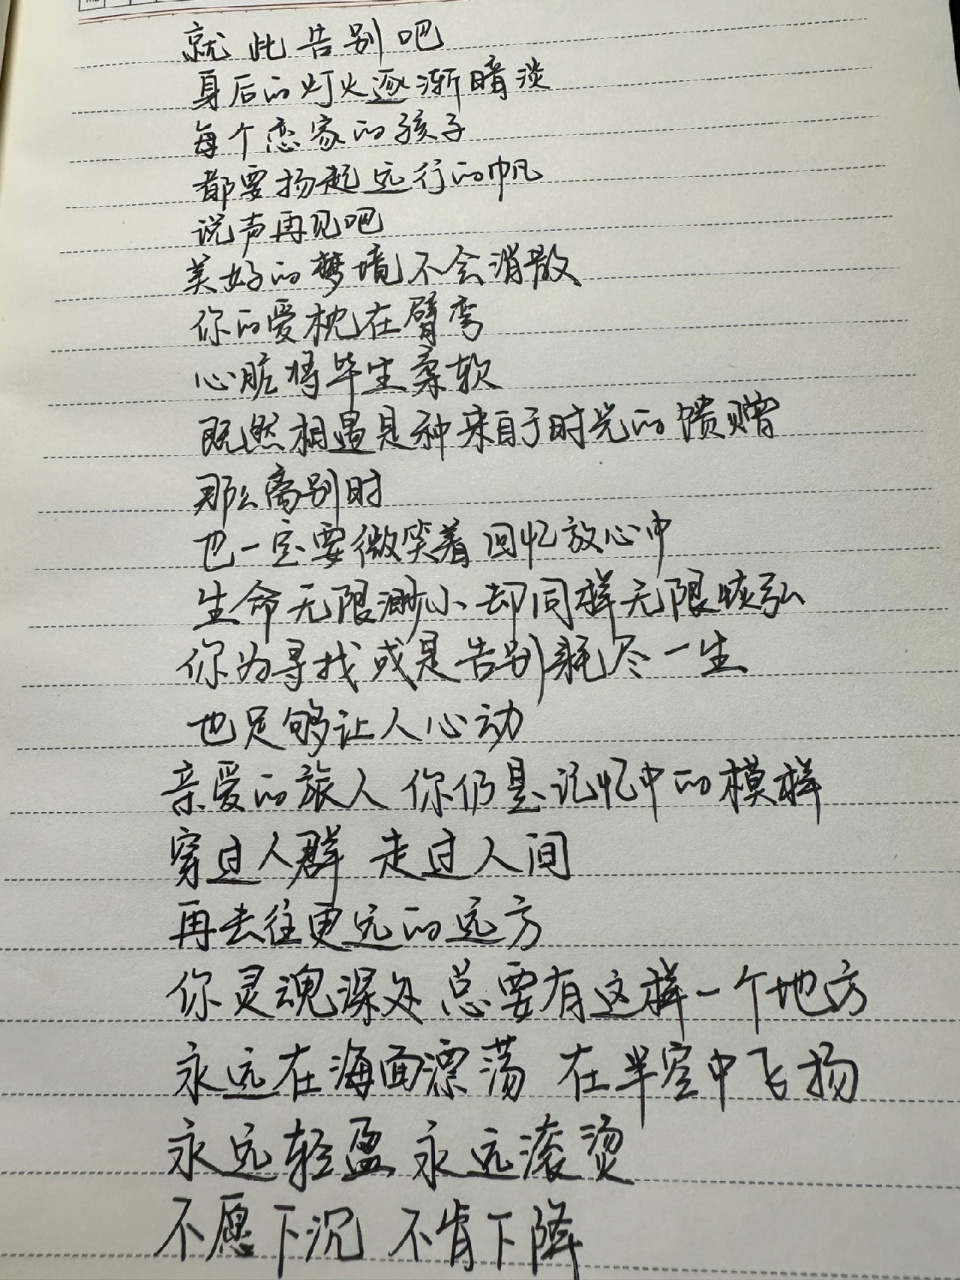 就此告别吧
身后的灯火逐渐暗淡
每个恋家的孩子
都要扬起远行的帆
说声再见吧
美好的梦境不会消散
你的爱枕在臂弯
心脏将毕生柔软
既然相遇是种来自于时光的馈赠
那么离别时
也一定要微笑着 回忆放心中
生命无限渺小 却同样无限恢弘
你为寻找或是告别 耗尽一生
也足够让人心动
亲爱的旅人 你仍是记忆中的模样
穿过人群 走过人间
再去往更远的远方
你灵魂深处 总要有这样一个地方
永远在海面漂荡 在半空中飞扬
永远轻盈 永远滚烫
不愿下沉 不肯下降